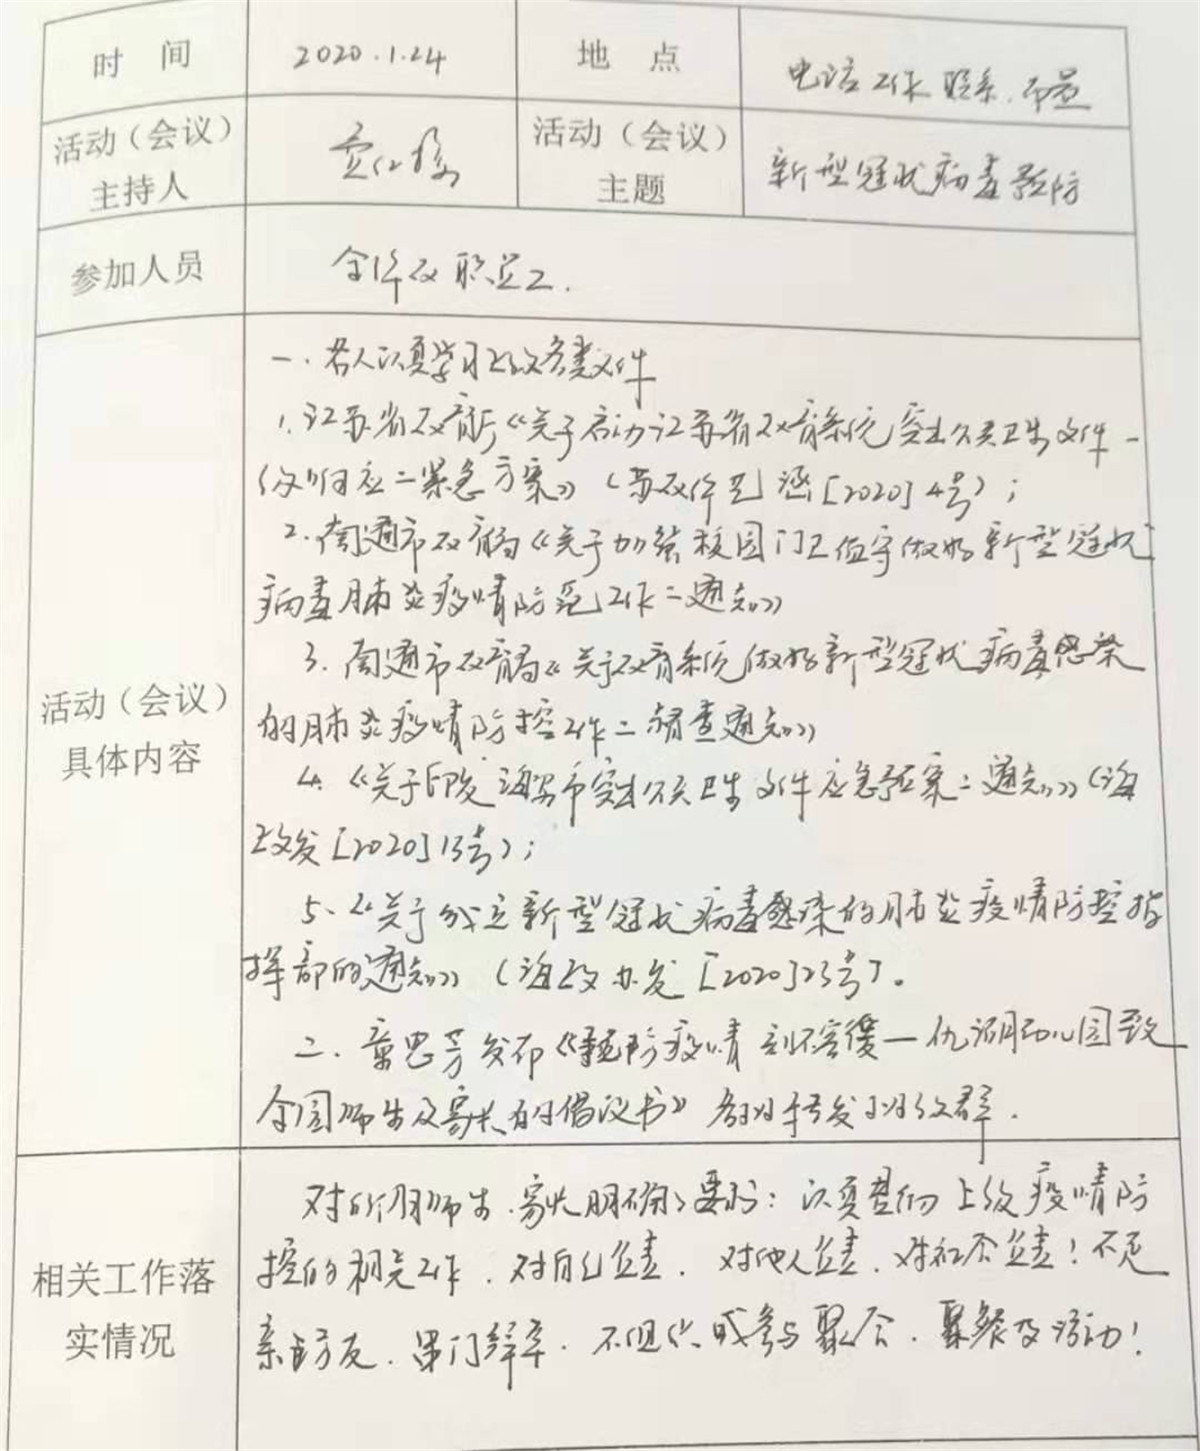 时 间 2020.1.24 地 点 电话工作联系、布置
活动（会议）主持人 活动（会议）主题 新型冠状病毒预防
参加人员 全体教职员工.
活动（会议）具体内容
一、各人认真学习上级各类文件
1.江苏省教育厅《关于启动江苏省教育系统突出公共卫生文件一
级响应二紧急方案》（苏教体艺函[2020]4号）；
2.南通市教育局《关于加强校园门卫值守做好新型冠状
病毒肺炎疫情防范工作二通知》
3.南通市教育局《关于教育系统做好新型冠状病毒感染
的肺炎疫情防控工作二督查通知》
4.《关于印发海安市突出公共卫生文件应急预案二通知》（海
政发[2020]13号）；
5.《关于成立新型冠状病毒感染的肺炎疫情防控指
挥部的通知》（海政办发[2020]23号）。
二、章思芳发布《预防疫情 刻不容缓—仇湖幼儿园致
全园师生及家长的倡议书》各班转发班级群.
相关工作落实情况
对所有师生、家长明确要求：认真贯彻上级疫情防
控的相关工作、对自己负责、对他人负责、对社会负责！不走
亲访友、串门拜年、不组织或参与聚会、聚餐及活动！